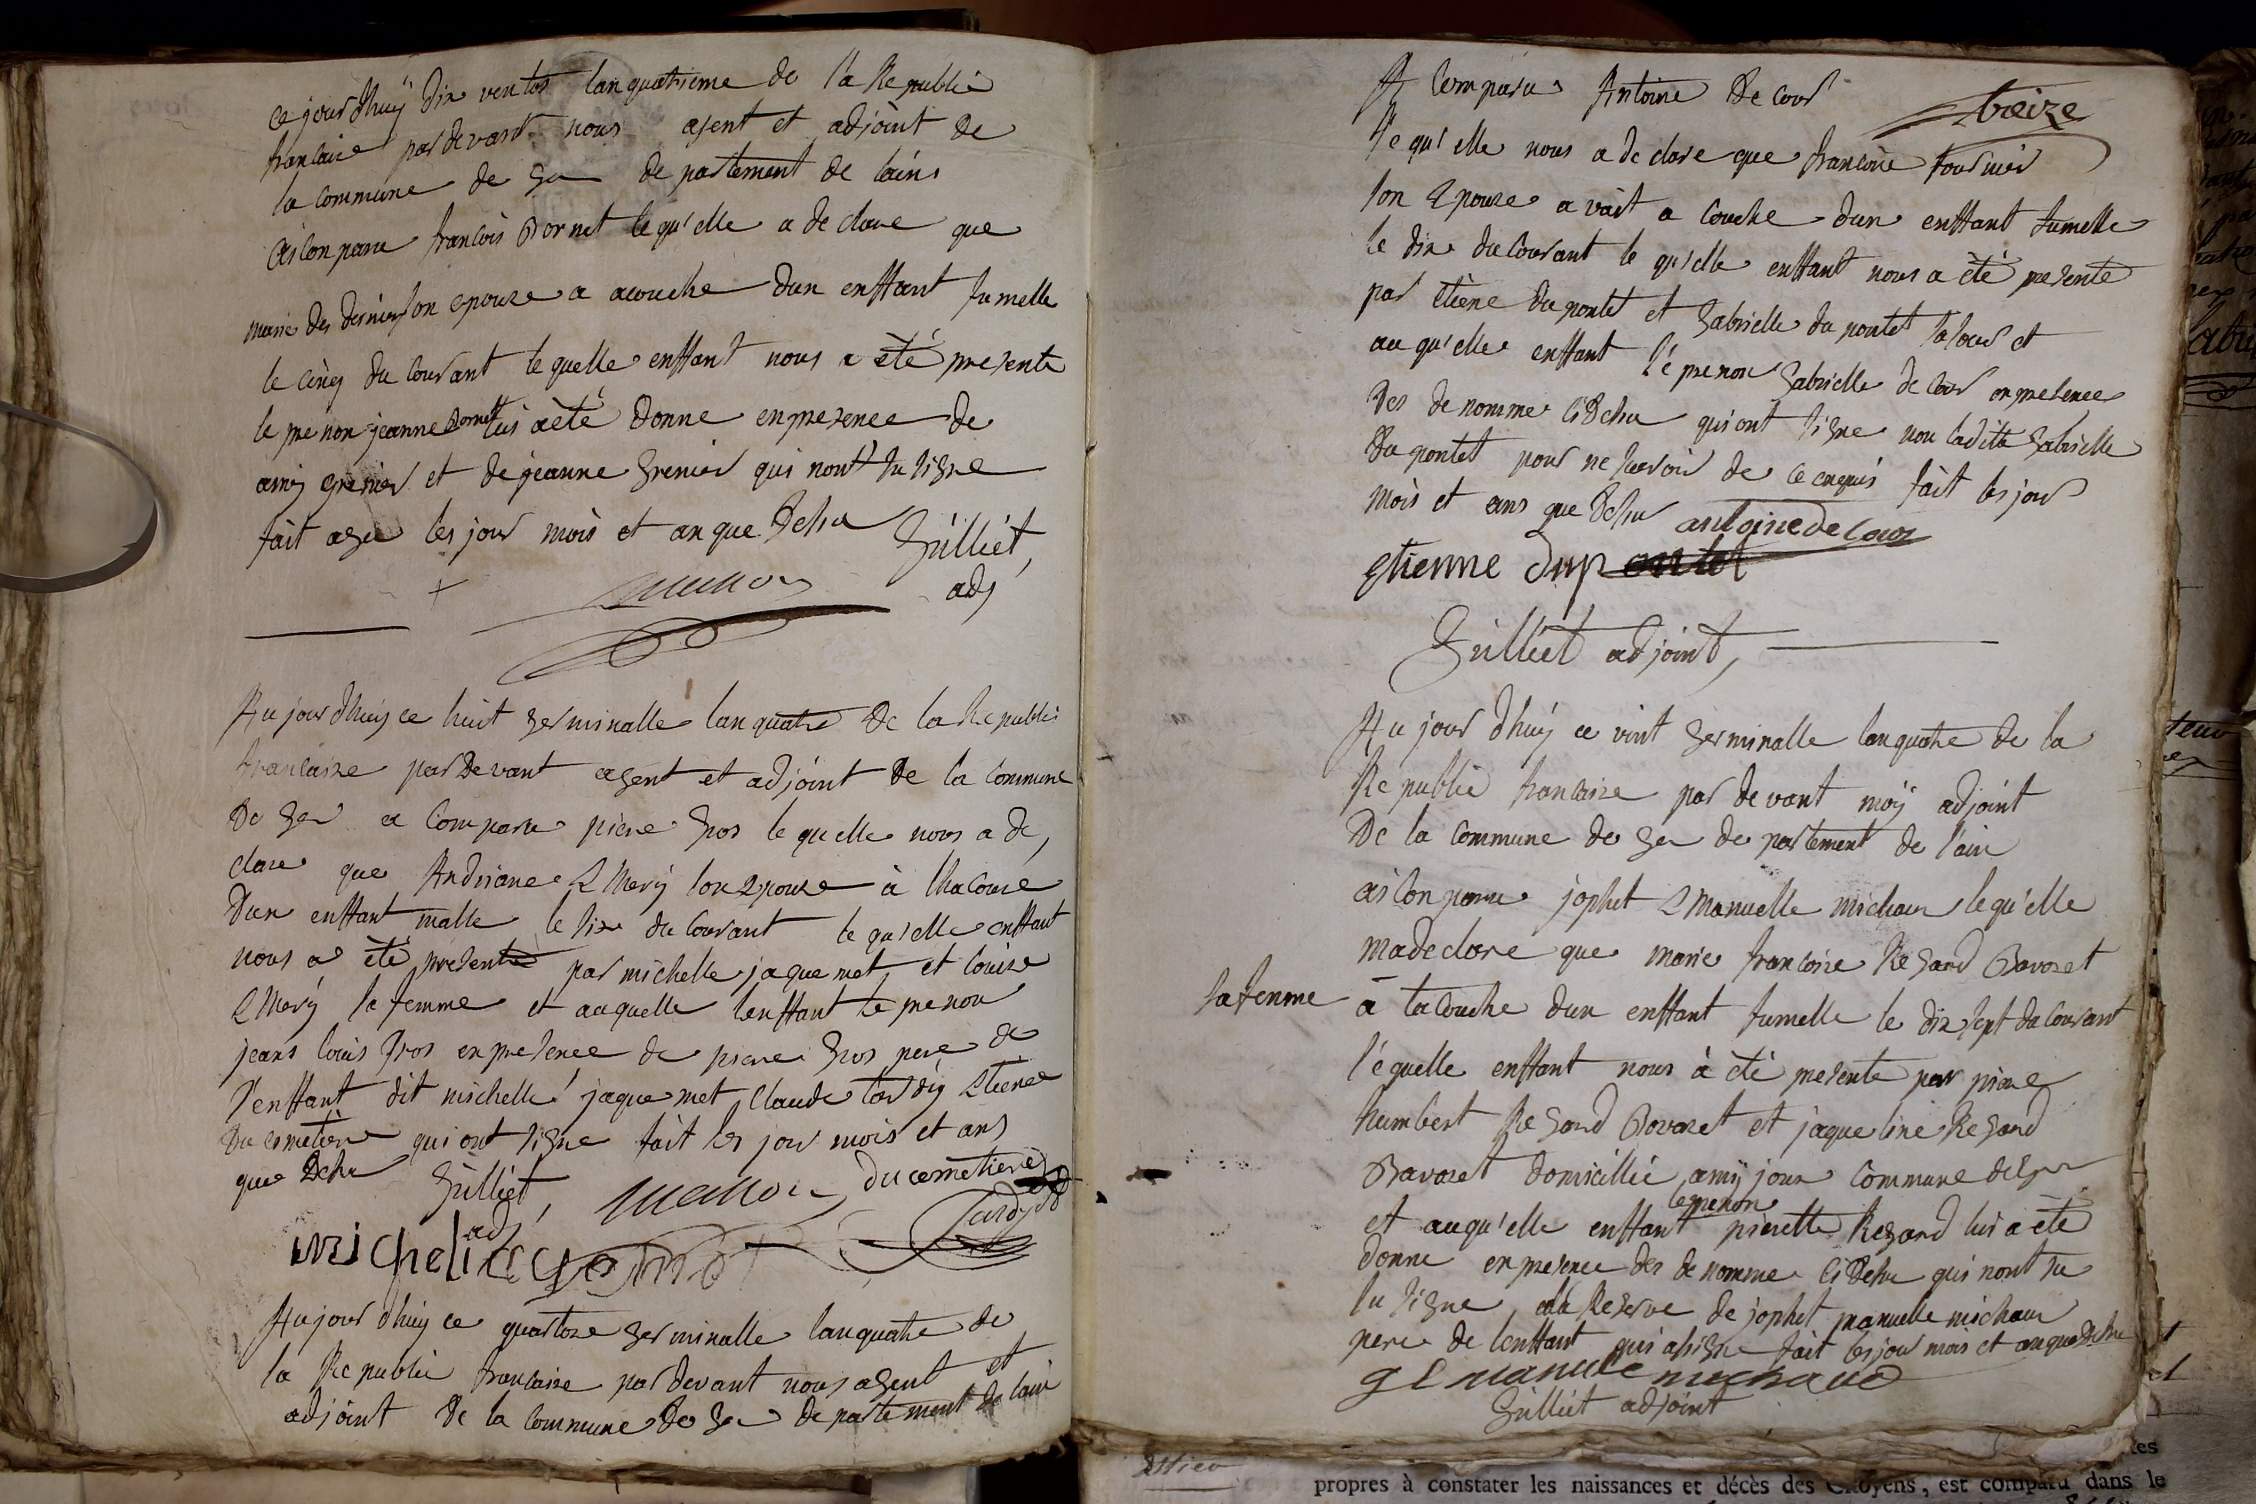 ce jourdhuÿ dix ventos lan quatrieme de la Republic
francaise pardevant nous agent et adjoint de
la commune de Gex departement de lains
ais Con paru francois Bornet le qu'elle a de clare que
marie des dernier son epouze a acouche dun enffant fumelle
le cinq du courant le quelle enffant nous a été presente
le prenon jeanne Bornet lui a été donne en presence de
amÿ grenier et de jeanne grenier qui nont su signe
fait a gex les jour mois et an que Deshu
Gilliet,
adj
Au jourdhuÿ ce huit germinalle lan quatre De la Republic
francaise par Devant agent et adjoint De la commune
De Gex a comparu piere gros le quelle nous a de,
clare que Andriane Emerÿ son epouze à Chacouve
Dun enffant malle le six du courant le qu'elle enffant
nous a été presenté par michelle jaquemet et Louise
Emerÿ sa femme et auquelle lenffant le prenon
jeans louis Gros en presence de piere Gros pere de
l'enffant dit michelle jaquemet Claude tardÿ Etiene
Du cemetiere qui ont signe fait les jour mois et ans
que Deshu
Gilliet,
adj
ducemetiere
Tardy
michel iaquemet
Au jourdhuÿ ce quatorze germinalle lan quatre de
la Republic francaise pardevant nous agent et
adjoint De la commune de Gex departement de lain
A Comparu Antoine De cour
treize
le qu'elle nous a de clare que francoise fournier
son Epouze a vait a Couche dun enffant fumelle
le dix du Courant le qu'elle enffant nous a été presente
par Etiene du pontet et Gabrielle du pontet sa sour et
au qu'elle enffant lé prenon Gabrielle de cour en presence
des denomme ci Deshu qui ont signe non ladite Gabrielle
Du pontet pour ne savoir de ce enquis fait les jour
mois et ans que Deshu
antoine de Cour
Etienne Dupontet
Gilliet adjoint,
Au jour dhuÿ ce vint germinalle lan quatre de la
Republic francaise par devant moÿ adjoint
De la commune de Gex departement de l'ain
ais Con paru jophet Emanuelle michaux le qu'elle
ma declare que marie francoise Regard Bavozet
sa femme
a lacouche dun enffant fumelle le dix sept du Courant
léquelle enffant nous à été presente par piere
humbert Regard Bovozet et jaqueline Regard
Bavozet domicillié amÿjoux commune de Gex
le prenon
et au qu'elle enffant pierette Regard lui a été
donne en presence des denomme ci Deshu qui nont su
su signe, ala Reserve de jophet manuelle michaux
pere de lenffant qui a signe fait les jour mois et an que Deshu
g Emanule michaud
Gilliet adjoint
propres à constater les naissances et décès des Citoyens, est comparu dans le